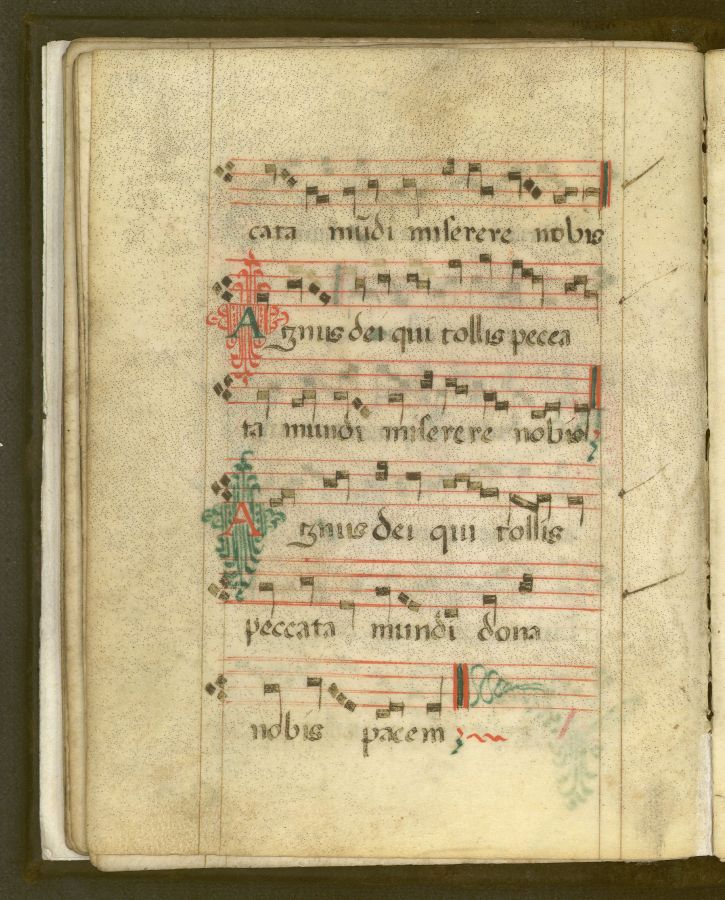 cata mūdi miserere nobis
Agnus dei qui tollis pecca
ta mundi miserere nobis
Agnus dei qui tollis
peccata mundi dona
nobis pacem